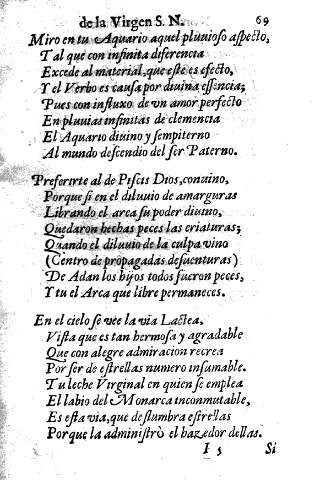 de la Virgen S. N. 69
Miro en tu Aquario aquel pluuioso aspecto,
Tal que con infinita diferencia
Excede al material, que este es efecto,
Y el Verbo es causa por diuina essencia;
Pues con influxo de vn amor perfecto
En pluuias infinitas de clemencia
El Aquario diuino y sempiterno
Al mundo descendio del ser Paterno.
Preferirte al de Piscis Dios, conuino,
Porque si en el diluuio de amarguras
Librando el arca su poder diuino,
Quedaron hechas peces las criaturas;
Quando el diluuio de la culpa vino
(Centro de propagadas desuenturas)
De Adan los hijos todos fueron peces,
Y tu el Arca que libre permaneces.
En el cielo se vee la via Lactea,
Vista que es tan hermosa y agradable
Que con alegre admiracion recrea
Por ser de estrellas numero insumable.
Tu leche Virginal en quien se emplea
El labio del Monarca inconmutable,
Es esta via, que deslumbra estrellas
Porque la administrò el hazedor dellas.
I 5 Si